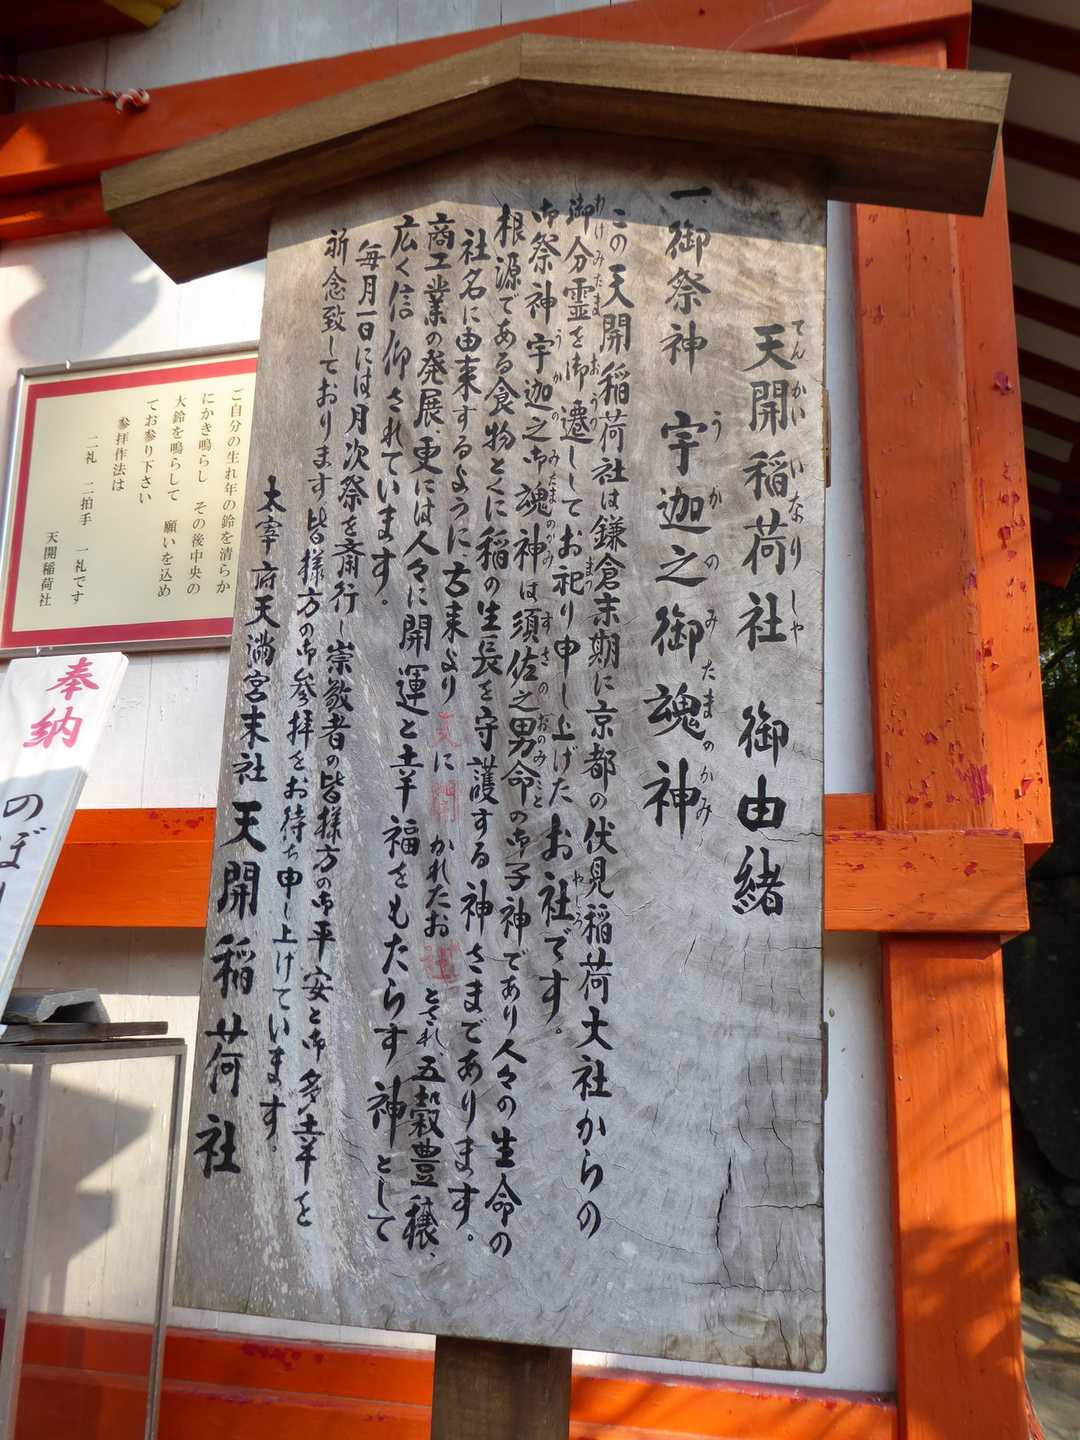 天開稲荷社 御由緒
てんかいいなりしゃ
一、御祭神 宇迦之御魂神
うかのみたまのかみ
この天開稲荷社は鎌倉末期に京都の伏見稲荷大社からの
御分霊を御遷してお祀り申し上げたお社です。
わけみたま おうつ まつ やしろ
御祭神宇迦之御魂神は須佐之男命の御子神であり人々の生命の
うかのみたまのかみ すさのおのみこと
根源である食物とくに稲の生長を守護する神さまであります。
社名に由来するように、古来より天に開かれたお社とされ、五穀豊穣、
商工業の発展、更には人々に開運と幸福をもたらす神として
広く信仰されています。
毎月一日には月次祭を斎行し崇敬者の皆様方の御平安と御多幸を
祈念致しております 皆様方の御参拝をお待ち申し上げています。
太宰府天満宮末社 天開稲荷社
ご自分の生れ年の鈴を清らか
にかき鳴らし その後中央の
大鈴を鳴らして 願いを込め
てお参り下さい
参拝作法は
二礼 二拍手 一礼です
天開稲荷社
奉納
のぼり